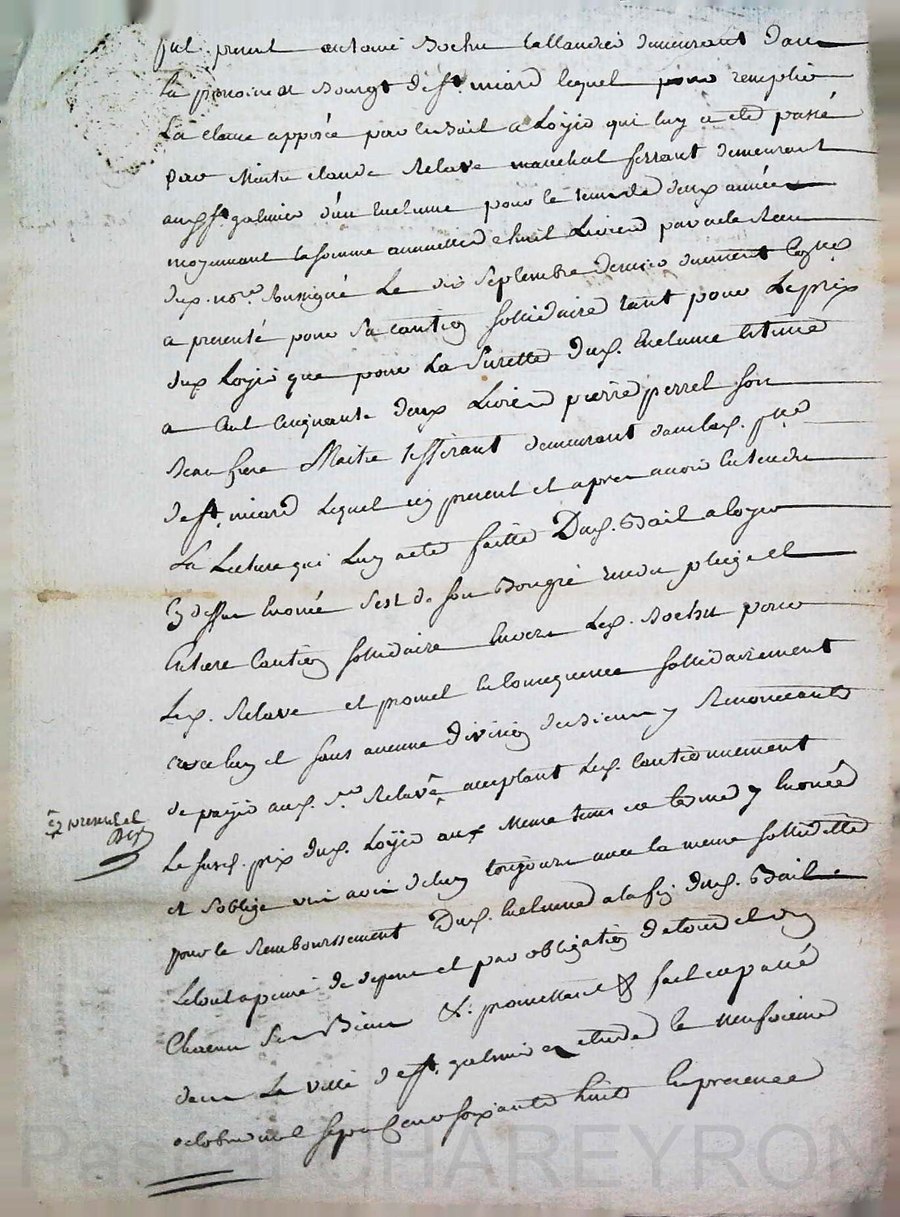 fut present antoine Bochu taillandier demeurant dans
la paroisse et Bourgt de st. miard lequel pour remplir
La clause apposée par le Bail a Loyer qui luy a eté passé
par Maitre claude Relave marechal ferrant demeurant
aud. st. galmier d'un Enclume pour le tems de deux années
moyennant la somme annuelle de huit Livres par acte Receu
du not.re soussigné Le dix septembre dernier duement
a presenté pour sa caution sollidaire tant pour Le prix
dud. Loyer que pour La surette dud. Enclume Estimé
a Cent Cinquante deux Livres pierre perrel son
Beau frere Maitre tisserant demeurant dans lad. p.sse
de st. miard Lequel icy present et apres avoir Entendu
La Lecture qui Luy a eté faitte Dud. Bail a loyer
Cy dessus Enoncé s'est de son Bongré rendu pleige et
Entiere Caution sollidaire Envers Led. Bochu pour
Led. Relave et promet En Consequence sollidairement
avec luy et sans aucune division de Biens y Renonceants
de payer aud. Sr. Relave acceptant Led. Cautionnement
icy present et
Le susd. prix dud. Loyer aux Meme tems et terme y Enoncés
et s'oblige vis avis de luy toujours avec la meme sollidité
pour le Remboursement Dud. Enclume a la fin dud. Bail
Le tout a peine de depens et par obligation de tous et un
Chacun Ses Biens &. promettant & fait et passé
dans La ville de st. galmier etude le neufvieme
octobre mil sept cens soixante huit En presence
Pascal CHAREYRON